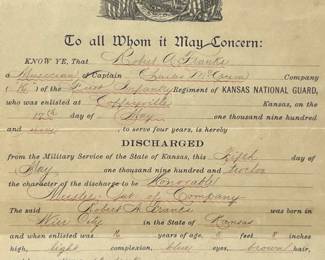 To all Whom it May Concern:
KNOW YE, That Robert A Franks
a Musician of Captain Charles McCrum Company
( ) of the First Infantry Regiment of KANSAS NATIONAL GUARD,
who was enlisted at Coffeyville on the
12th day of May one thousand nine hundred and
nine, to serve four years, is hereby
DISCHARGED
from the Military Service of the State of Kansas, this Fifth day of
May one thousand nine hundred and twelve
the character of the discharge to be Honorable
Muster Out of Company
The said Robert A. Franks was born in
Weir City in the State of Kansas
and when enlisted was 16 years of age, 5 feet 8 inches
high, light complexion, blue eyes, brown hair,